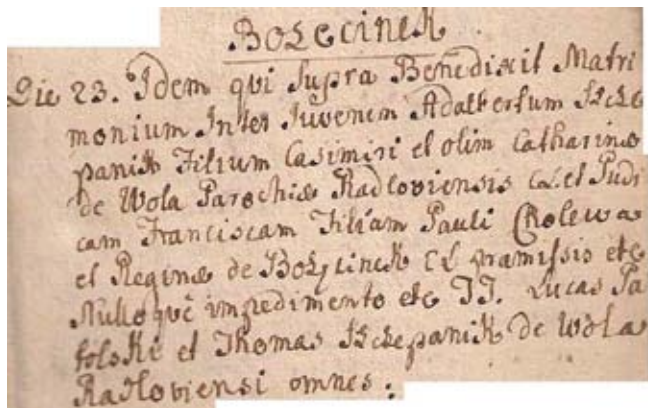 Bozęcinek
Die 23. Idem qui supra Benedixit Matri
monium Inter Iuvenem Adalbertum Szcze
panik Filium Casimiri et olim Catharinæ
de Wola Parochiæ Radloviensis et Pudi
cam Franciscam Filiam Pauli Crolewa
et Reginæ de Bozęcinek præmissis etc
Nulloque impedimento etc TT. Lucas Pa
tolski et Thomas Szczepanik de Wola
Radloviensi omnes.